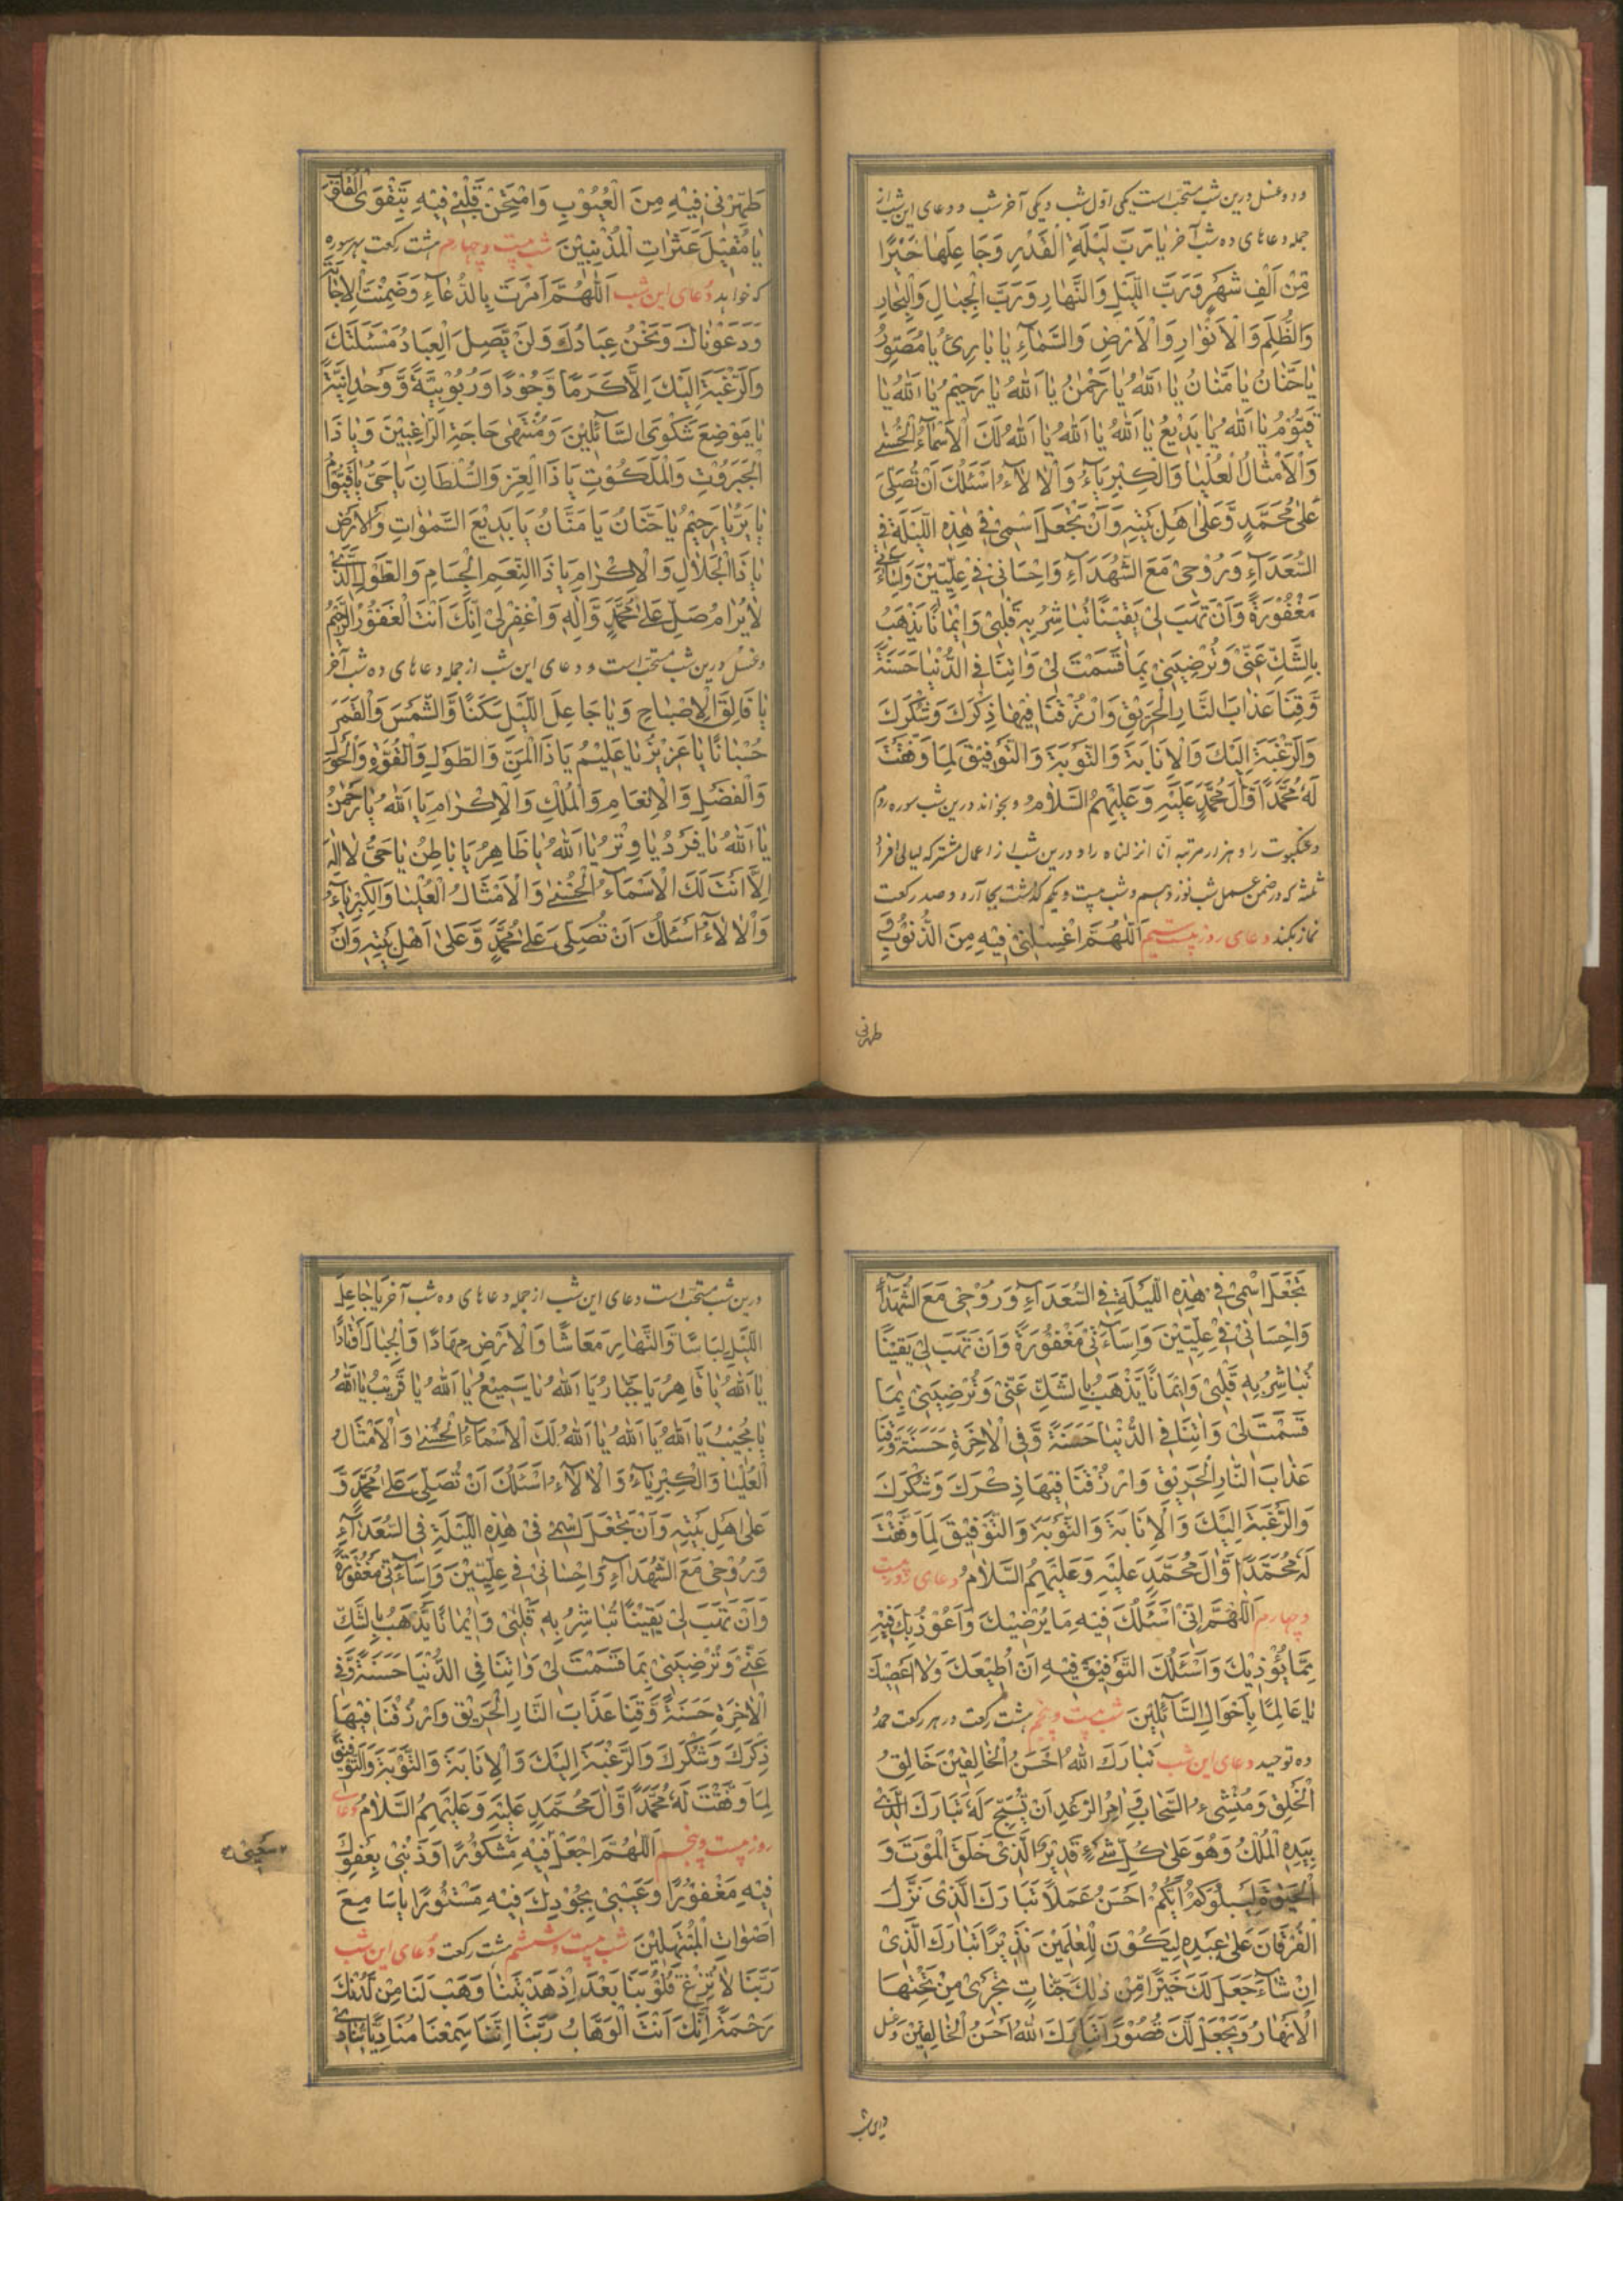 ودو غسل درین شب مستحبّ است یکی اوّل شب و یکی آخر شب و دعای این شب از
جمله دعاهای ده شب آخر یَا رَبَّ لَیْلَةِ الْقَدْرِ وَجَاعِلَهَا خَیْرًا
مِّنْ اَلْفِ شَهْرٍ وَرَبَّ اللَّیْلِ وَالنَّهَارِ وَرَبَّ الْجِبَالِ وَالْبِحَارِ
وَالظُّلَمِ وَالْاَنْوَارِ وَالْاَرْضِ وَالسَّمَآءِ یَا بَارِئُ یَا مُصَوِّرُ
یَا حَنَّانُ یَا مَنَّانُ یَا اَللّٰهُ یَا رَحْمٰنُ یَا اَللّٰهُ یَا رَحِیْمُ یَا اَللّٰهُ یَا
قَیُّوْمُ یَا اَللّٰهُ یَا بَدِیْعُ یَا اَللّٰهُ یَا اَللّٰهُ یَا اَللّٰهُ لَكَ الْاَسْمَآءُ الْحُسْنٰی
وَالْاَمْثَالُ الْعُلْیَا وَالْكِبْرِیَآءُ وَالْاٰلَآءُ اَسْئَلُكَ اَنْ تُصَلِّیَ
عَلٰی مُحَمَّدٍ وَّعَلٰی اَهْلِ بَیْتِهِ وَاَنْ تَجْعَلَ اسْمِیْ فِیْ هٰذِهِ اللَّیْلَةِ فِی
السُّعَدَآءِ وَرُوْحِیْ مَعَ الشُّهَدَآءِ وَاِحْسَانِیْ فِیْ عِلِّیِّیْنَ وَاِسَآءَتِیْ
مَغْفُوْرَةً وَاَنْ تَهَبَ لِیْ یَقِیْنًا تُبَاشِرُ بِهِ قَلْبِیْ وَاِیْمَانًا یَذْهَبُ
بِالشَّكِّ عَنِّیْ وَتُرْضِیَنِیْ بِمَا قَسَمْتَ لِیْ وَاٰتِنَا فِی الدُّنْیَا حَسَنَةً
وَّقِنَا عَذَابَ النَّارِ الْحَرِیْقِ وَارْزُقْنَا فِیْهَا ذِكْرَكَ وَشُكْرَكَ
وَالرَّغْبَةَ اِلَیْكَ وَالْاِنَابَةَ وَالتَّوْبَةَ وَالتَّوْفِیْقَ لِمَا وَفَّقْتَ
لَهُ مُحَمَّدًا وَّاٰلَ مُحَمَّدٍ عَلَیْهِ وَعَلَیْهِمُ السَّلَامُ و بخواند درین شب سوره روم
و عنکبوت را و هزار مرتبه انا انزلناه را و درین شب از اعمال مشترکه لیالی افراد
ثلثه که در ضمن عمل شب نوزدهم و شب بیست و یکم گذشت بجا آرد و صد رکعت
نماز بکند دعای روز بیست سیم اَللّٰهُمَّ اغْسِلْنِیْ فِیْهِ مِنَ الذُّنُوْبِ وَ
طهرنی
طَهِّرْنِیْ فِیْهِ مِنَ الْعُیُوْبِ وَامْتَحِنْ قَلْبِیْ فِیْهِ بِتَقْوَی الْقُلُوْبِ
یَا مُقِیْلَ عَثَرَاتِ الْمُذْنِبِیْنَ شب بیست و چهارم هشت رکعت بهر سوره
که خواهد دُعای این شب اَللّٰهُمَّ اَمَرْتَ بِالدُّعَآءِ وَضَمِنْتَ الْاِجَابَةَ
وَدَعَوْنَاكَ وَنَحْنُ عِبَادُكَ وَلَنْ یَّصِلَ الْعِبَادُ مَسْئَلَتَكَ
وَالرَّغْبَةَ اِلَیْكَ اِلَّا كَرَمًا وَّجُوْدًا وَرُبُوْبِیَّةً وَّوَحْدَانِیَّةً
یَا مَوْضِعَ شَكْوَی السَّآئِلِیْنَ وَمُنْتَهٰی حَاجَةِ الرَّاغِبِیْنَ وَیَا ذَا
الْجَبَرُوْتِ وَالْمَلَكُوْتِ یَا ذَا الْعِزِّ وَالسُّلْطَانِ یَا حَیُّ یَا قَیُّوْمُ
یَا بَرُّ یَا رَحِیْمُ یَا حَنَّانُ یَا مَنَّانُ یَا بَدِیْعَ السَّمٰوَاتِ وَالْاَرْضِ
یَا ذَا الْجَلَالِ وَالْاِكْرَامِ یَا ذَا النِّعَمِ الْجِسَامِ وَالطَّوْلِ الَّذِیْ
لَا یُرَامُ صَلِّ عَلٰی مُحَمَّدٍ وَّاٰلِهِ وَاغْفِرْ لِیْ اِنَّكَ اَنْتَ الْغَفُوْرُ الرَّحِیْمُ
و غسل درین شب مستحبّ است و دعای این شب از جمله دعاهای ده شب آخر
یَا فَالِقَ الْاِصْبَاحِ وَیَا جَاعِلَ اللَّیْلِ سَكَنًا وَّالشَّمْسَ وَالْقَمَرَ
حُسْبَانًا یَا عَزِیْزُ یَا عَلِیْمُ یَا ذَا الْمَنِّ وَالطَّوْلِ وَالْقُوَّةِ وَالْحَوْلِ
وَالْفَضْلِ وَالْاِنْعَامِ وَالْمُلْكِ وَالْاِكْرَامِ یَا اَللّٰهُ یَا رَحْمٰنُ
یَا اَللّٰهُ یَا فَرْدُ یَا وِتْرُ یَا اَللّٰهُ یَا ظَاهِرُ یَا بَاطِنُ یَا حَیُّ لَا اِلٰهَ
اِلَّا اَنْتَ لَكَ الْاَسْمَآءُ الْحُسْنٰی وَالْاَمْثَالُ الْعُلْیَا وَالْكِبْرِیَآءُ
وَالْاٰلَآءُ اَسْئَلُكَ اَنْ تُصَلِّیَ عَلٰی مُحَمَّدٍ وَّعَلٰی اَهْلِ بَیْتِهِ وَاَنْ
تَجْعَلَ اسْمِیْ فِیْ هٰذِهِ اللَّیْلَةِ فِی السُّعَدَآءِ وَرُوْحِیْ مَعَ الشُّهَدَآءِ
وَاِحْسَانِیْ فِیْ عِلِّیِّیْنَ وَاِسَآءَتِیْ مَغْفُوْرَةً وَاَنْ تَهَبَ لِیْ یَقِیْنًا
تُبَاشِرُ بِهِ قَلْبِیْ وَاِیْمَانًا یَّذْهَبُ بِالشَّكِّ عَنِّیْ وَتُرْضِیَنِیْ بِمَا
قَسَمْتَ لِیْ وَاٰتِنَا فِی الدُّنْیَا حَسَنَةً وَّفِی الْاٰخِرَةِ حَسَنَةً وَّقِنَا
عَذَابَ النَّارِ الْحَرِیْقِ وَارْزُقْنَا فِیْهَا ذِكْرَكَ وَشُكْرَكَ
وَالرَّغْبَةَ اِلَیْكَ وَالْاِنَابَةَ وَالتَّوْبَةَ وَالتَّوْفِیْقَ لِمَا وَفَّقْتَ
لَهُ مُحَمَّدًا وَّاٰلَ مُحَمَّدٍ عَلَیْهِ وَعَلَیْهِمُ السَّلَامُ دعای روز بیست
و چهارم اَللّٰهُمَّ اِنِّیْ اَسْئَلُكَ فِیْهِ مَا یُرْضِیْكَ وَاَعُوْذُ بِكَ فِیْهِ
مِمَّا یُؤْذِیْكَ وَاَسْئَلُكَ التَّوْفِیْقَ فِیْهِ اَنْ اُطِیْعَكَ وَلَا اَعْصِیَكَ
یَا عَالِمًا بِاَحْوَالِ السَّآئِلِیْنَ شب بیست و پنجم هشت رکعت در هر رکعت حمد
ده توحید دعای این شب تَبَارَكَ اللّٰهُ اَحْسَنُ الْخَالِقِیْنَ خَالِقُ
الْخَلْقِ وَمُنْشِیءُ السَّحَابِ وَاٰمِرُ الرَّعْدِ اَنْ یُّسَبِّحَ لَهُ تَبَارَكَ الَّذِیْ
بِیَدِهِ الْمُلْكُ وَهُوَ عَلٰی كُلِّ شَیْءٍ قَدِیْرٌ الَّذِیْ خَلَقَ الْمَوْتَ وَ
الْحَیٰوةَ لِیَبْلُوَكُمْ اَیُّكُمْ اَحْسَنُ عَمَلًا تَبَارَكَ الَّذِیْ نَزَّلَ
الْفُرْقَانَ عَلٰی عَبْدِهِ لِیَكُوْنَ لِلْعٰلَمِیْنَ نَذِیْرًا تَبَارَكَ الَّذِیْ
اِنْ شَآءَ جَعَلَ لَكَ خَیْرًا مِّنْ ذٰلِكَ جَنَّاتٍ تَجْرِیْ مِنْ تَحْتِهَا
الْاَنْهَارُ وَیَجْعَلْ لَّكَ قُصُوْرًا تَبَارَكَ اللّٰهُ اَحْسَنُ الْخَالِقِیْنَ و غسل
درین شب
درین شب مستحبّ است دعای این شب از جمله دعاهای ده شب آخر یَا جَاعِلَ
اللَّیْلِ لِبَاسًا وَّالنَّهَارِ مَعَاشًا وَالْاَرْضِ مِهَادًا وَالْجِبَالِ اَوْتَادًا
یَا اَللّٰهُ یَا قَاهِرُ یَا جَبَّارُ یَا اَللّٰهُ یَا سَمِیْعُ یَا اَللّٰهُ یَا قَرِیْبُ یَا اَللّٰهُ
یَا مُجِیْبُ یَا اَللّٰهُ یَا اَللّٰهُ یَا اَللّٰهُ لَكَ الْاَسْمَآءُ الْحُسْنٰی وَالْاَمْثَالُ
الْعُلْیَا وَالْكِبْرِیَآءُ وَالْاٰلَآءُ اَسْئَلُكَ اَنْ تُصَلِّیَ عَلٰی مُحَمَّدٍ وَّ
عَلٰی اَهْلِ بَیْتِهِ وَاَنْ تَجْعَلَ اسْمِیْ فِیْ هٰذِهِ اللَّیْلَةِ فِی السُّعَدَآءِ
وَرُوْحِیْ مَعَ الشُّهَدَآءِ وَاِحْسَانِیْ فِیْ عِلِّیِّیْنَ وَاِسَآءَتِیْ مَغْفُوْرَةً
وَاَنْ تَهَبَ لِیْ یَقِیْنًا تُبَاشِرُ بِهِ قَلْبِیْ وَاِیْمَانًا یَّذْهَبُ بِالشَّكِّ
عَنِّیْ وَتُرْضِیَنِیْ بِمَا قَسَمْتَ لِیْ وَاٰتِنَا فِی الدُّنْیَا حَسَنَةً وَّفِی
الْاٰخِرَةِ حَسَنَةً وَّقِنَا عَذَابَ النَّارِ الْحَرِیْقِ وَارْزُقْنَا فِیْهَا
ذِكْرَكَ وَشُكْرَكَ وَالرَّغْبَةَ اِلَیْكَ وَالْاِنَابَةَ وَالتَّوْبَةَ وَالتَّوْفِیْقَ
لِمَا وَفَّقْتَ لَهُ مُحَمَّدًا وَّاٰلَ مُحَمَّدٍ عَلَیْهِ وَعَلَیْهِمُ السَّلَامُ دعای
روز بیست و پنجم اَللّٰهُمَّ اجْعَلْ فِیْهِ مَشْكُوْرًا وَذَنْبِیْ بِعَفْوِكَ
سَعْیِیْ
فِیْهِ مَغْفُوْرًا وَعَیْبِیْ بِجُوْدِكَ فِیْهِ مَسْتُوْرًا یَا سَامِعَ
اَصْوَاتِ الْمُبْتَهِلِیْنَ شب بیست و ششم هشت رکعت دُعای این شب
رَبَّنَا لَا تُزِغْ قُلُوْبَنَا بَعْدَ اِذْ هَدَیْتَنَا وَهَبْ لَنَا مِنْ لَّدُنْكَ
رَحْمَةً اِنَّكَ اَنْتَ الْوَهَّابُ رَبَّنَا اِنَّنَا سَمِعْنَا مُنَادِیًا یُّنَادِیْ